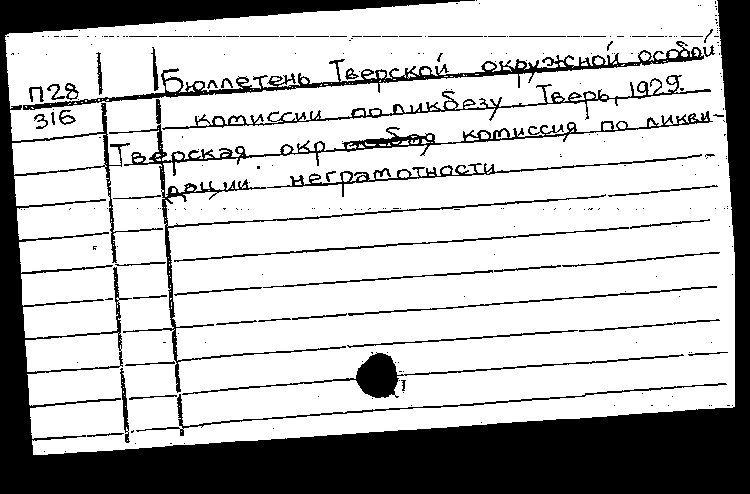 П28
316
Бюллетень Тверской окружной особой
комиссии по ликбезу. Тверь, 1929.
Тверская окр особая комиссия по ликви-
дации неграмотности